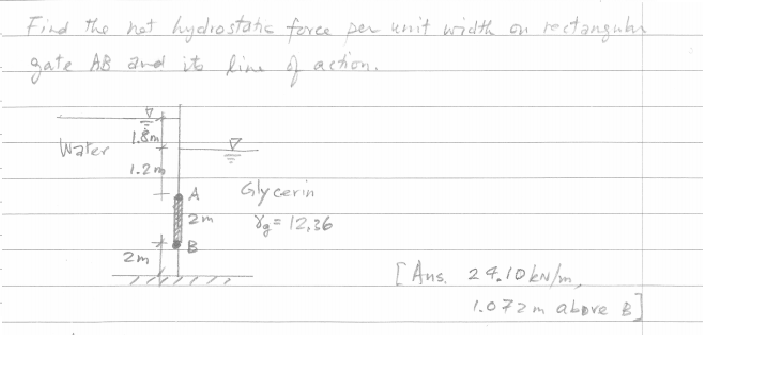 Find the net hydrostatic force per unit width on rectangular
gate AB and its line of action.
1.8m
Water
1.2m
A
Glycerin
2m
γg = 12,36
B
2m
[Ans. 24.10 kN/m,
1.072m above B]